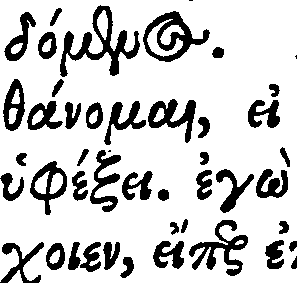 δόμενος.
θάνομαι, εἰ
ὑφέξει. ἐγὼ
χοιεν, εἴπερ ἐπ